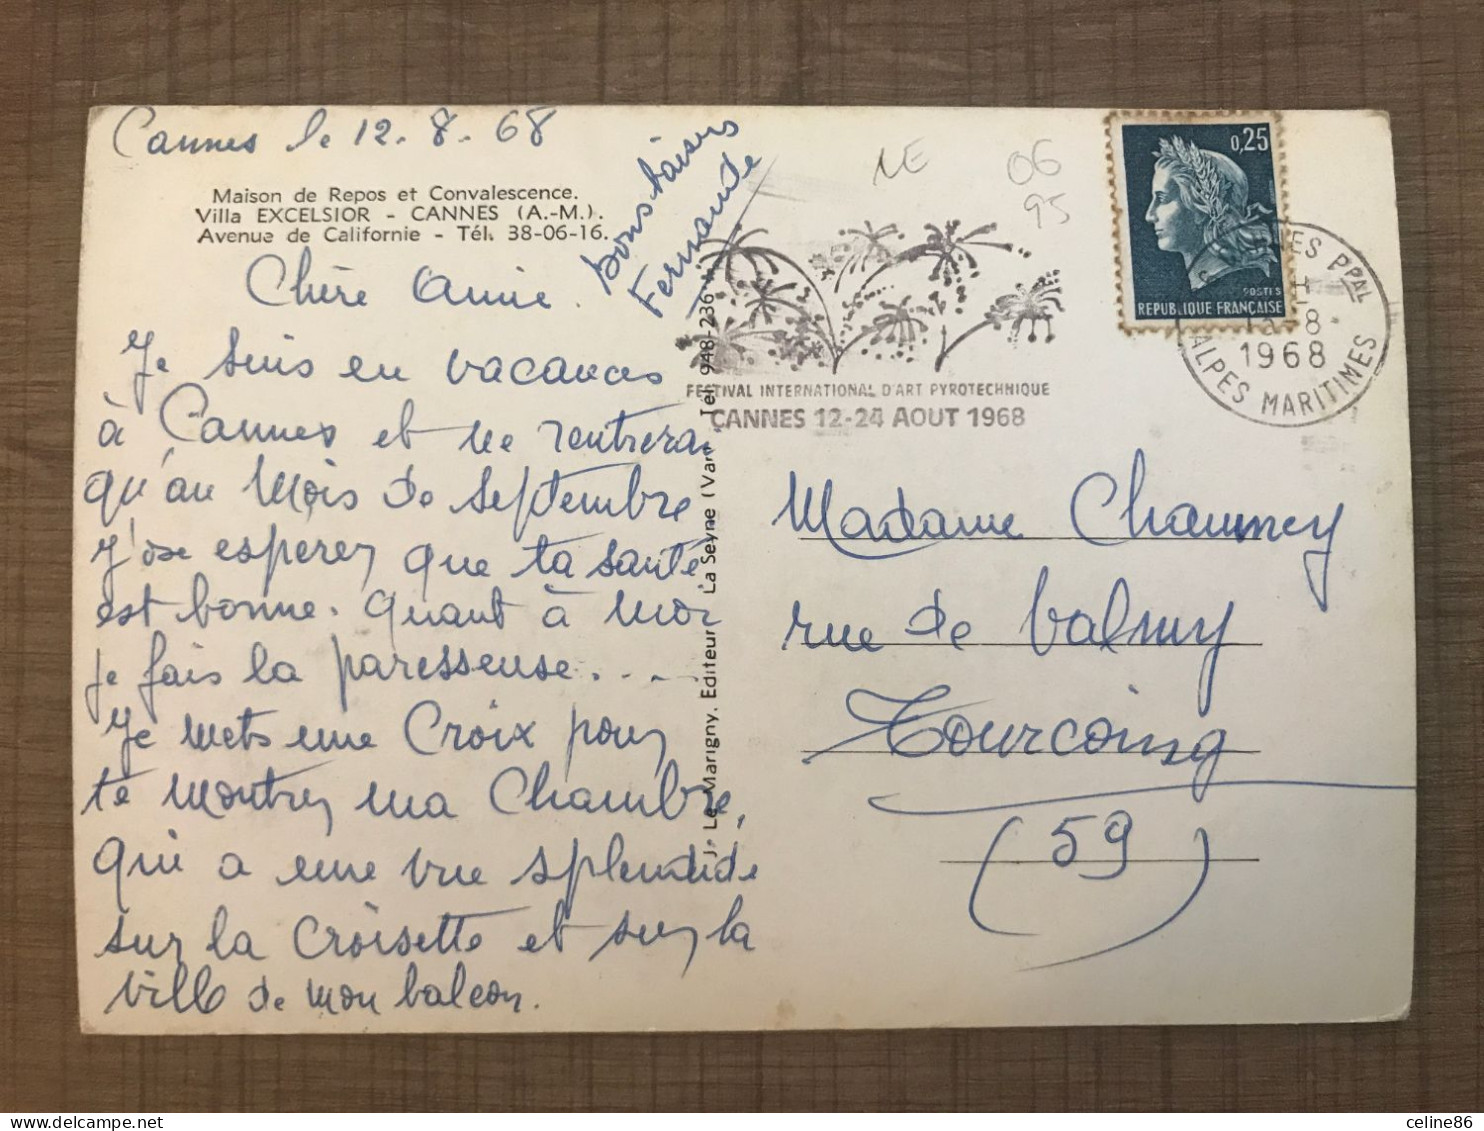 Cannes le 12.8.68
Maison de Repos et Convalescence.
Villa EXCELSIOR - CANNES (A.-M.).
Avenue de Californie - Tél. 38-06-16.
Chère Annie.
Je suis en vacances
à Cannes et ne rentrerai
qu'au mois de septembre
J'ose esperer que ta santé
est bonne. Quant à moi
je fais la paresseuse...
Je mets une Croix pour
te montrer ma Chambre,
qui a une vue splendide
sur la Croisette et sur la
ville de mon balcon.
bons baisers
Fernande
J. Le Marigny, Editeur La Seyne (Var) Tél. 948-236
1E
06
95
0,25
POSTES
REPUBLIQUE FRANÇAISE
FESTIVAL INTERNATIONAL D'ART PYROTECHNIQUE
CANNES 12-24 AOUT 1968
CANNES PPAL
1968
ALPES MARITIMES
Madame Chaumey
rue de Valmy
Tourcoing
(59)
celine86